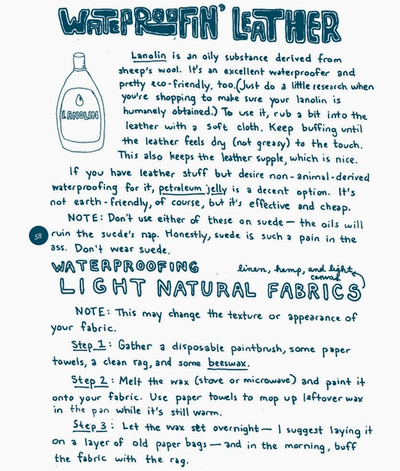 WATERPROOFIN' LEATHER
Lanolin is an oily substance derived from
sheep's wool. It's an excellent waterproofer and
pretty eco-friendly, too. (Just do a little research when
you're shopping to make sure your lanolin is
humanely obtained.) To use it, rub a bit into the
leather with a soft cloth. Keep buffing until
the leather feels dry (not greasy) to the touch.
This also keeps the leather supple, which is nice.
LANOLIN
If you have leather stuff but desire non-animal-derived
waterproofing for it, petroleum jelly is a decent option. It's
not earth-friendly, of course, but it's effective and cheap.
NOTE: Don't use either of these on suede — the oils will
ruin the suede's nap. Honestly, suede is such a pain in the
ass. Don't wear suede.
58
WATERPROOFING
linen, hemp, and light
canvas
LIGHT NATURAL FABRICS
NOTE: This may change the texture or appearance of
your fabric.
Step 1: Gather a disposable paintbrush, some paper
towels, a clean rag, and some beeswax.
Step 2: Melt the wax (stove or microwave) and paint it
onto your fabric. Use paper towels to mop up leftover wax
in the pan while it's still warm.
Step 3: Let the wax set overnight — I suggest laying it
on a layer of old paper bags — and in the morning, buff
the fabric with the rag.